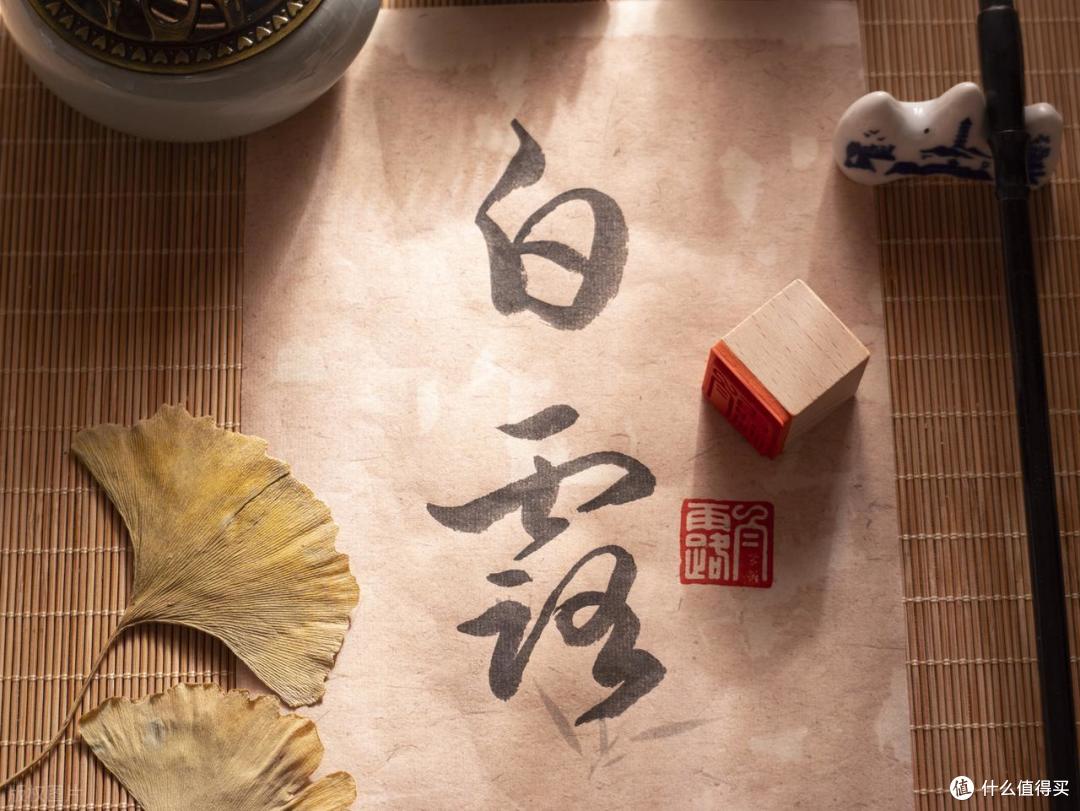 白
露
露
值 什么值得买